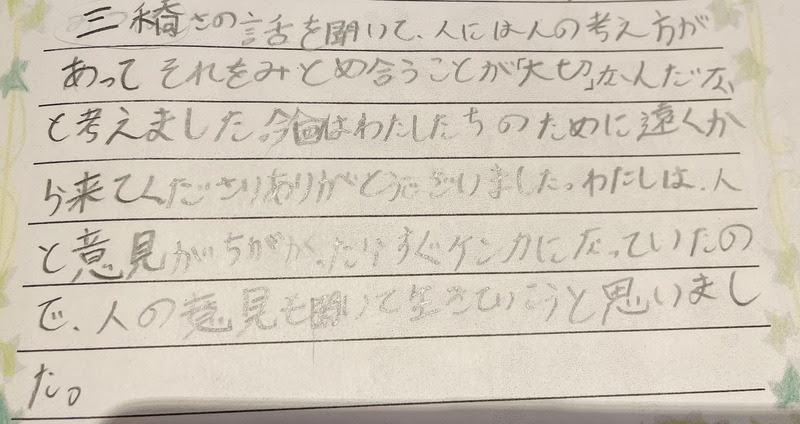 三橋さの話を聞いて、人には人の考え方が
あってそれをみとめ合うことが「大切」なんだな、
と考えました。今回はわたしたちのために遠くか
ら来てくださりありがとうございました。わたしは、人
と意見がちがかったりすぐケンカになっていたの
で、人の意見も聞いて生きていこうと思いまし
た。